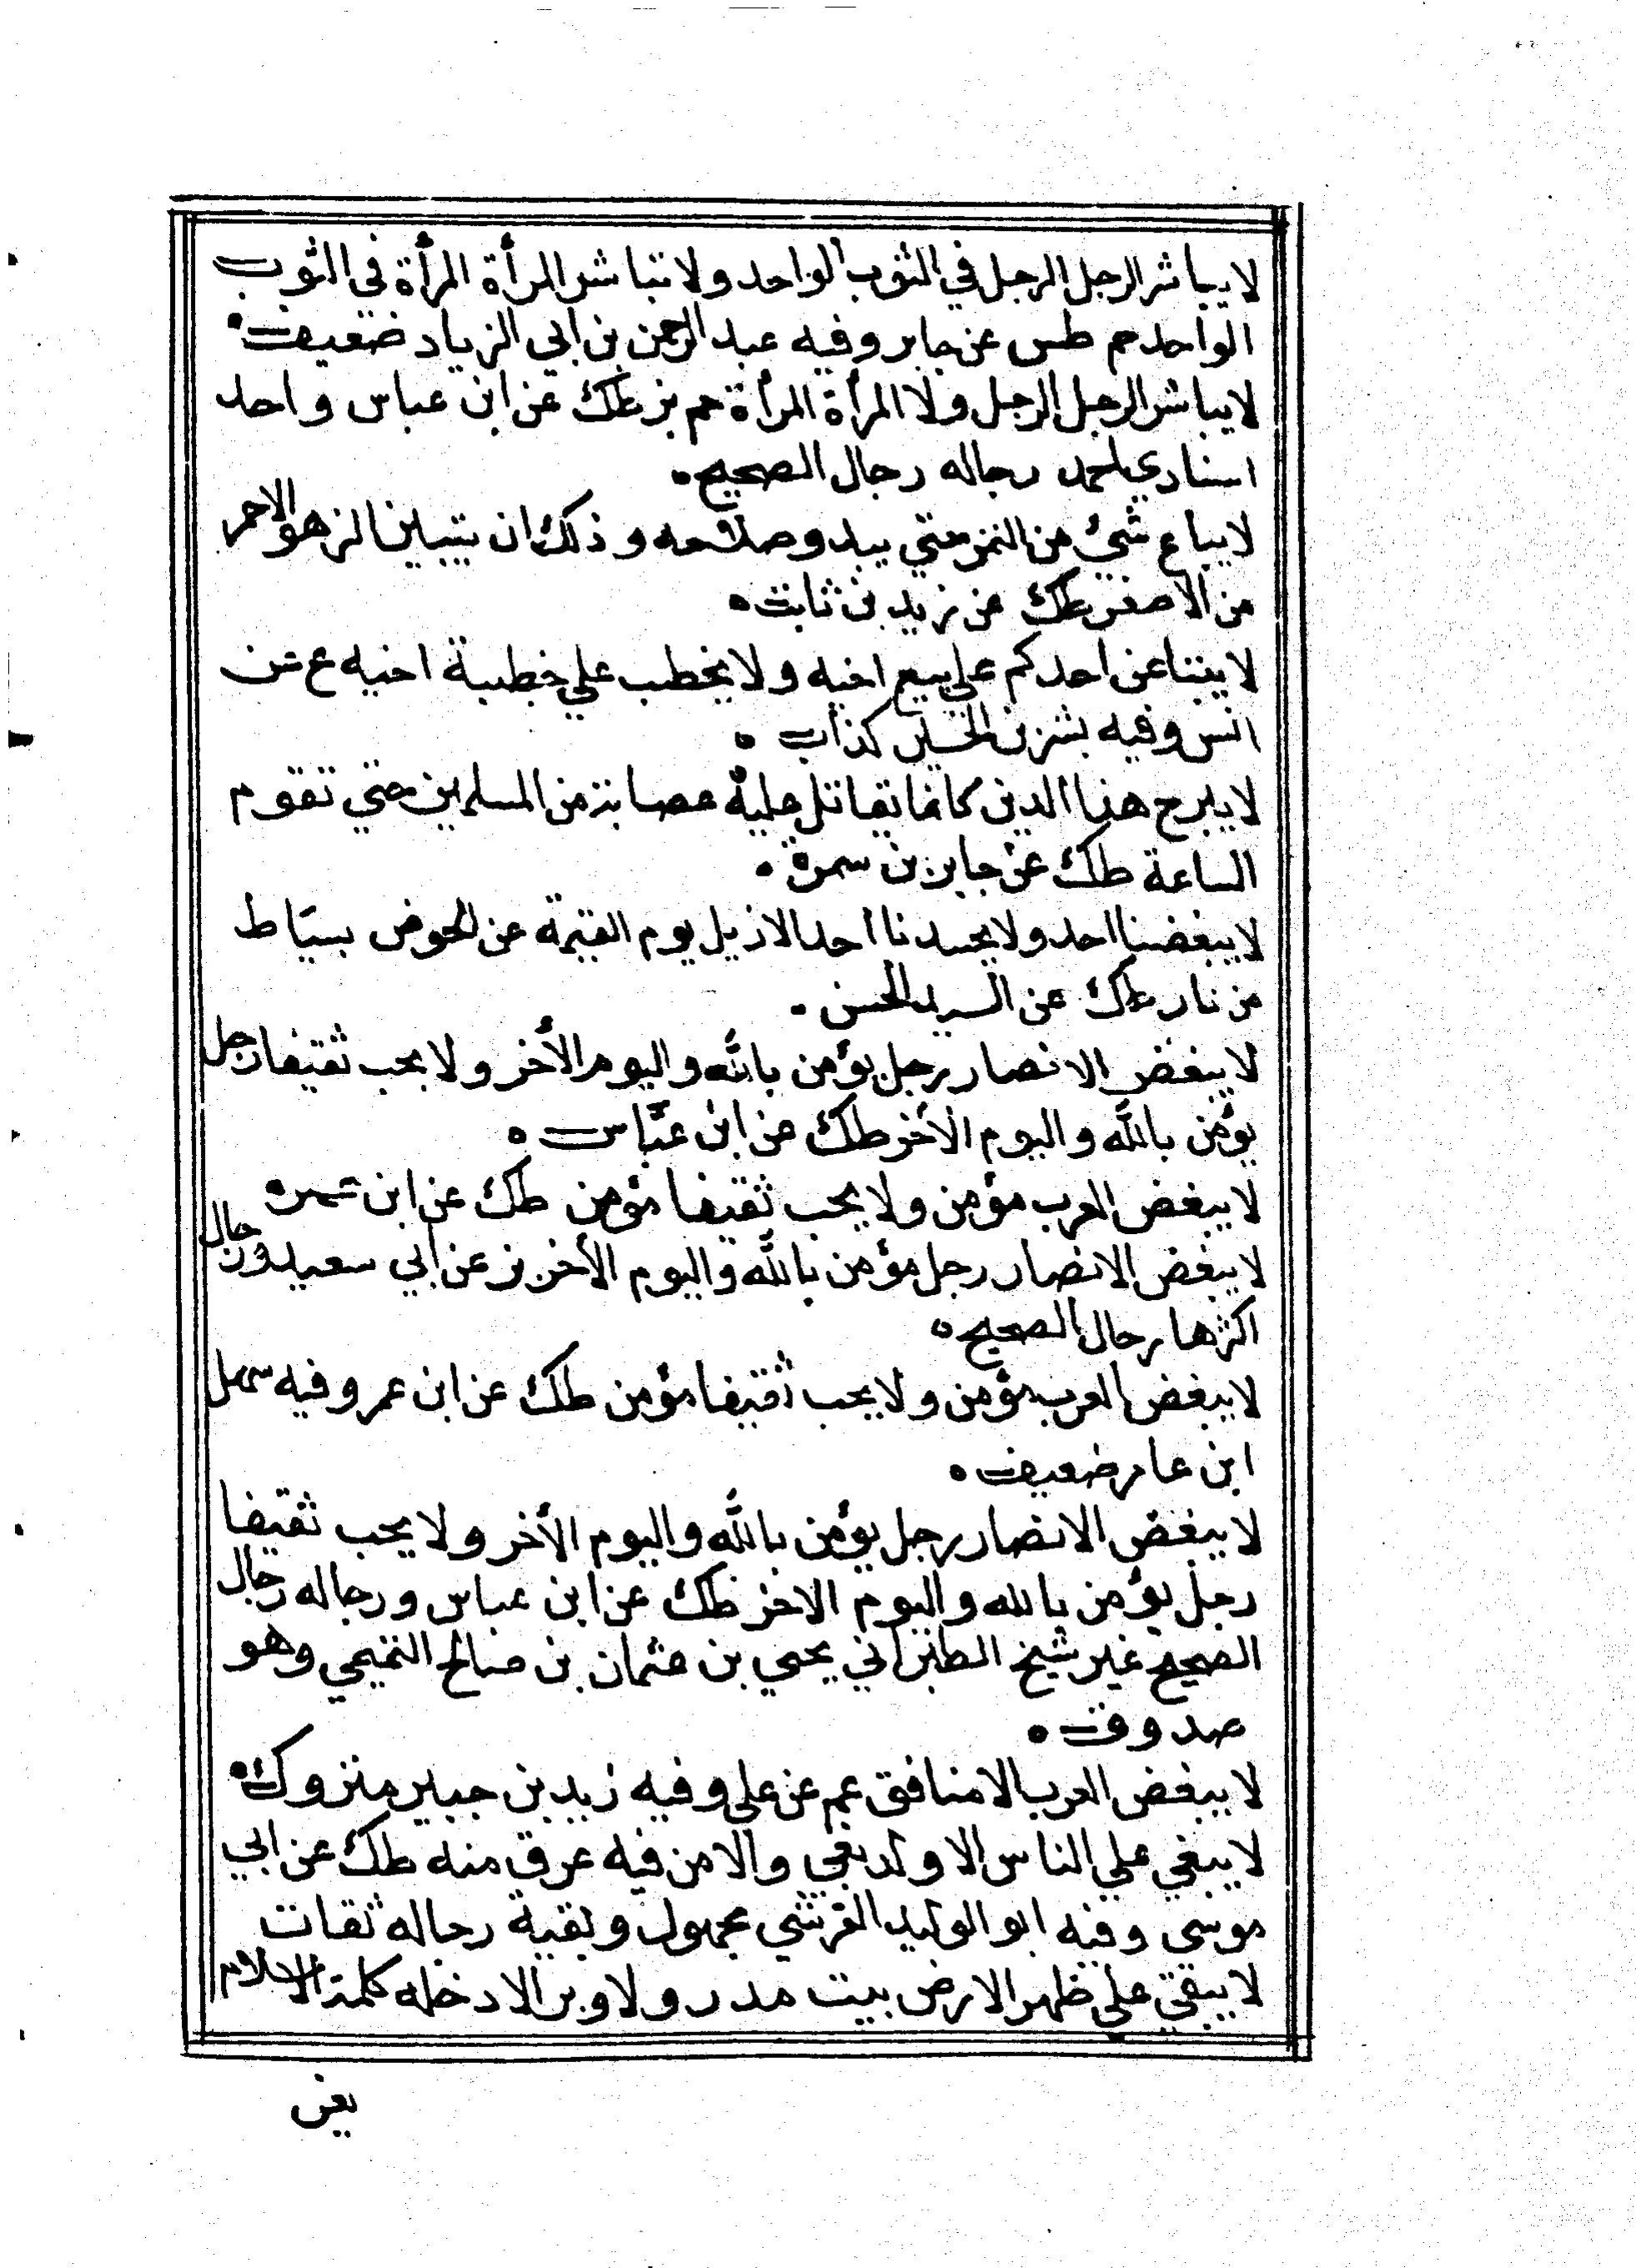 لا يباشر الرجل الرجل في الثوب الواحد ولا تباشر المرأة المرأة في الثوب
الواحد حم طس عن جابر وفيه عبد الرحمن بن ابي الزياد ضعيف
لا يباشر الرجل الرجل ولا المرأة المرأة حم بز طك عن ابن عباس واحد
اسنادي احمد رجاله رجال الصحيح
لا يباع شئ من الثمر حتي يبدو صلاحه وذلك ان يتبين الزهو الاحمر
من الاصفر طك عن زيد بن ثابت
لا يبتاعن احدكم علي بيع اخيه ولا يخطب علي خطبة اخيه ع عن
انس وفيه بشر بن الحسين كذاب
لا يبرح هذا الدين كانما تقاتل عليه عصابة من المسلمين حتي تقوم
الساعة طك عن جابر بن سمرة
لا يبغضنا احد ولا يحسدنا احد الا زيل يوم القيمة عن الحوض بسياط
من نار طك عن السيد الحسن
لا يبغض الانصار رجل يؤمن بالله واليوم الأخر ولا يحب ثقيفا رجل
يؤمن بالله واليوم الأخر طك عن ابن عباس
لا يبغض العرب مؤمن ولا يحب ثقيفا مؤمن طك عن ابن عمر
لا يبغض الانصار رجل مؤمن بالله واليوم الأخر بز عن ابي سعيد ورجال
اكثرها رجال الصحيح
لا يبغض العرب مؤمن ولا يحب ثقيفا مؤمن طك عن ابن عمر وفيه سهل
ابن عامر ضعيف
لا يبغض الانصار رجل يؤمن بالله واليوم الأخر ولا يحب ثقيفا
رجل يؤمن بالله واليوم الاخر طك عن ابن عباس ورجاله رجال
الصحيح غير شيخ الطبراني يحيي بن عثمان بن صالح التميمي وهو
صدوق
لا يبغض العرب الا منافق عم عن علي وفيه زيد بن جبير متروك
لا يبغي علي الناس الا ولد بغي والا من فيه عرق منه طك عن ابي
موسى وفيه ابو الوليد القرشي مجهول وبقية رجاله ثقات
لا يبقي علي ظهر الارض بيت مدر ولا وبر الا دخله كلمة الاسلام